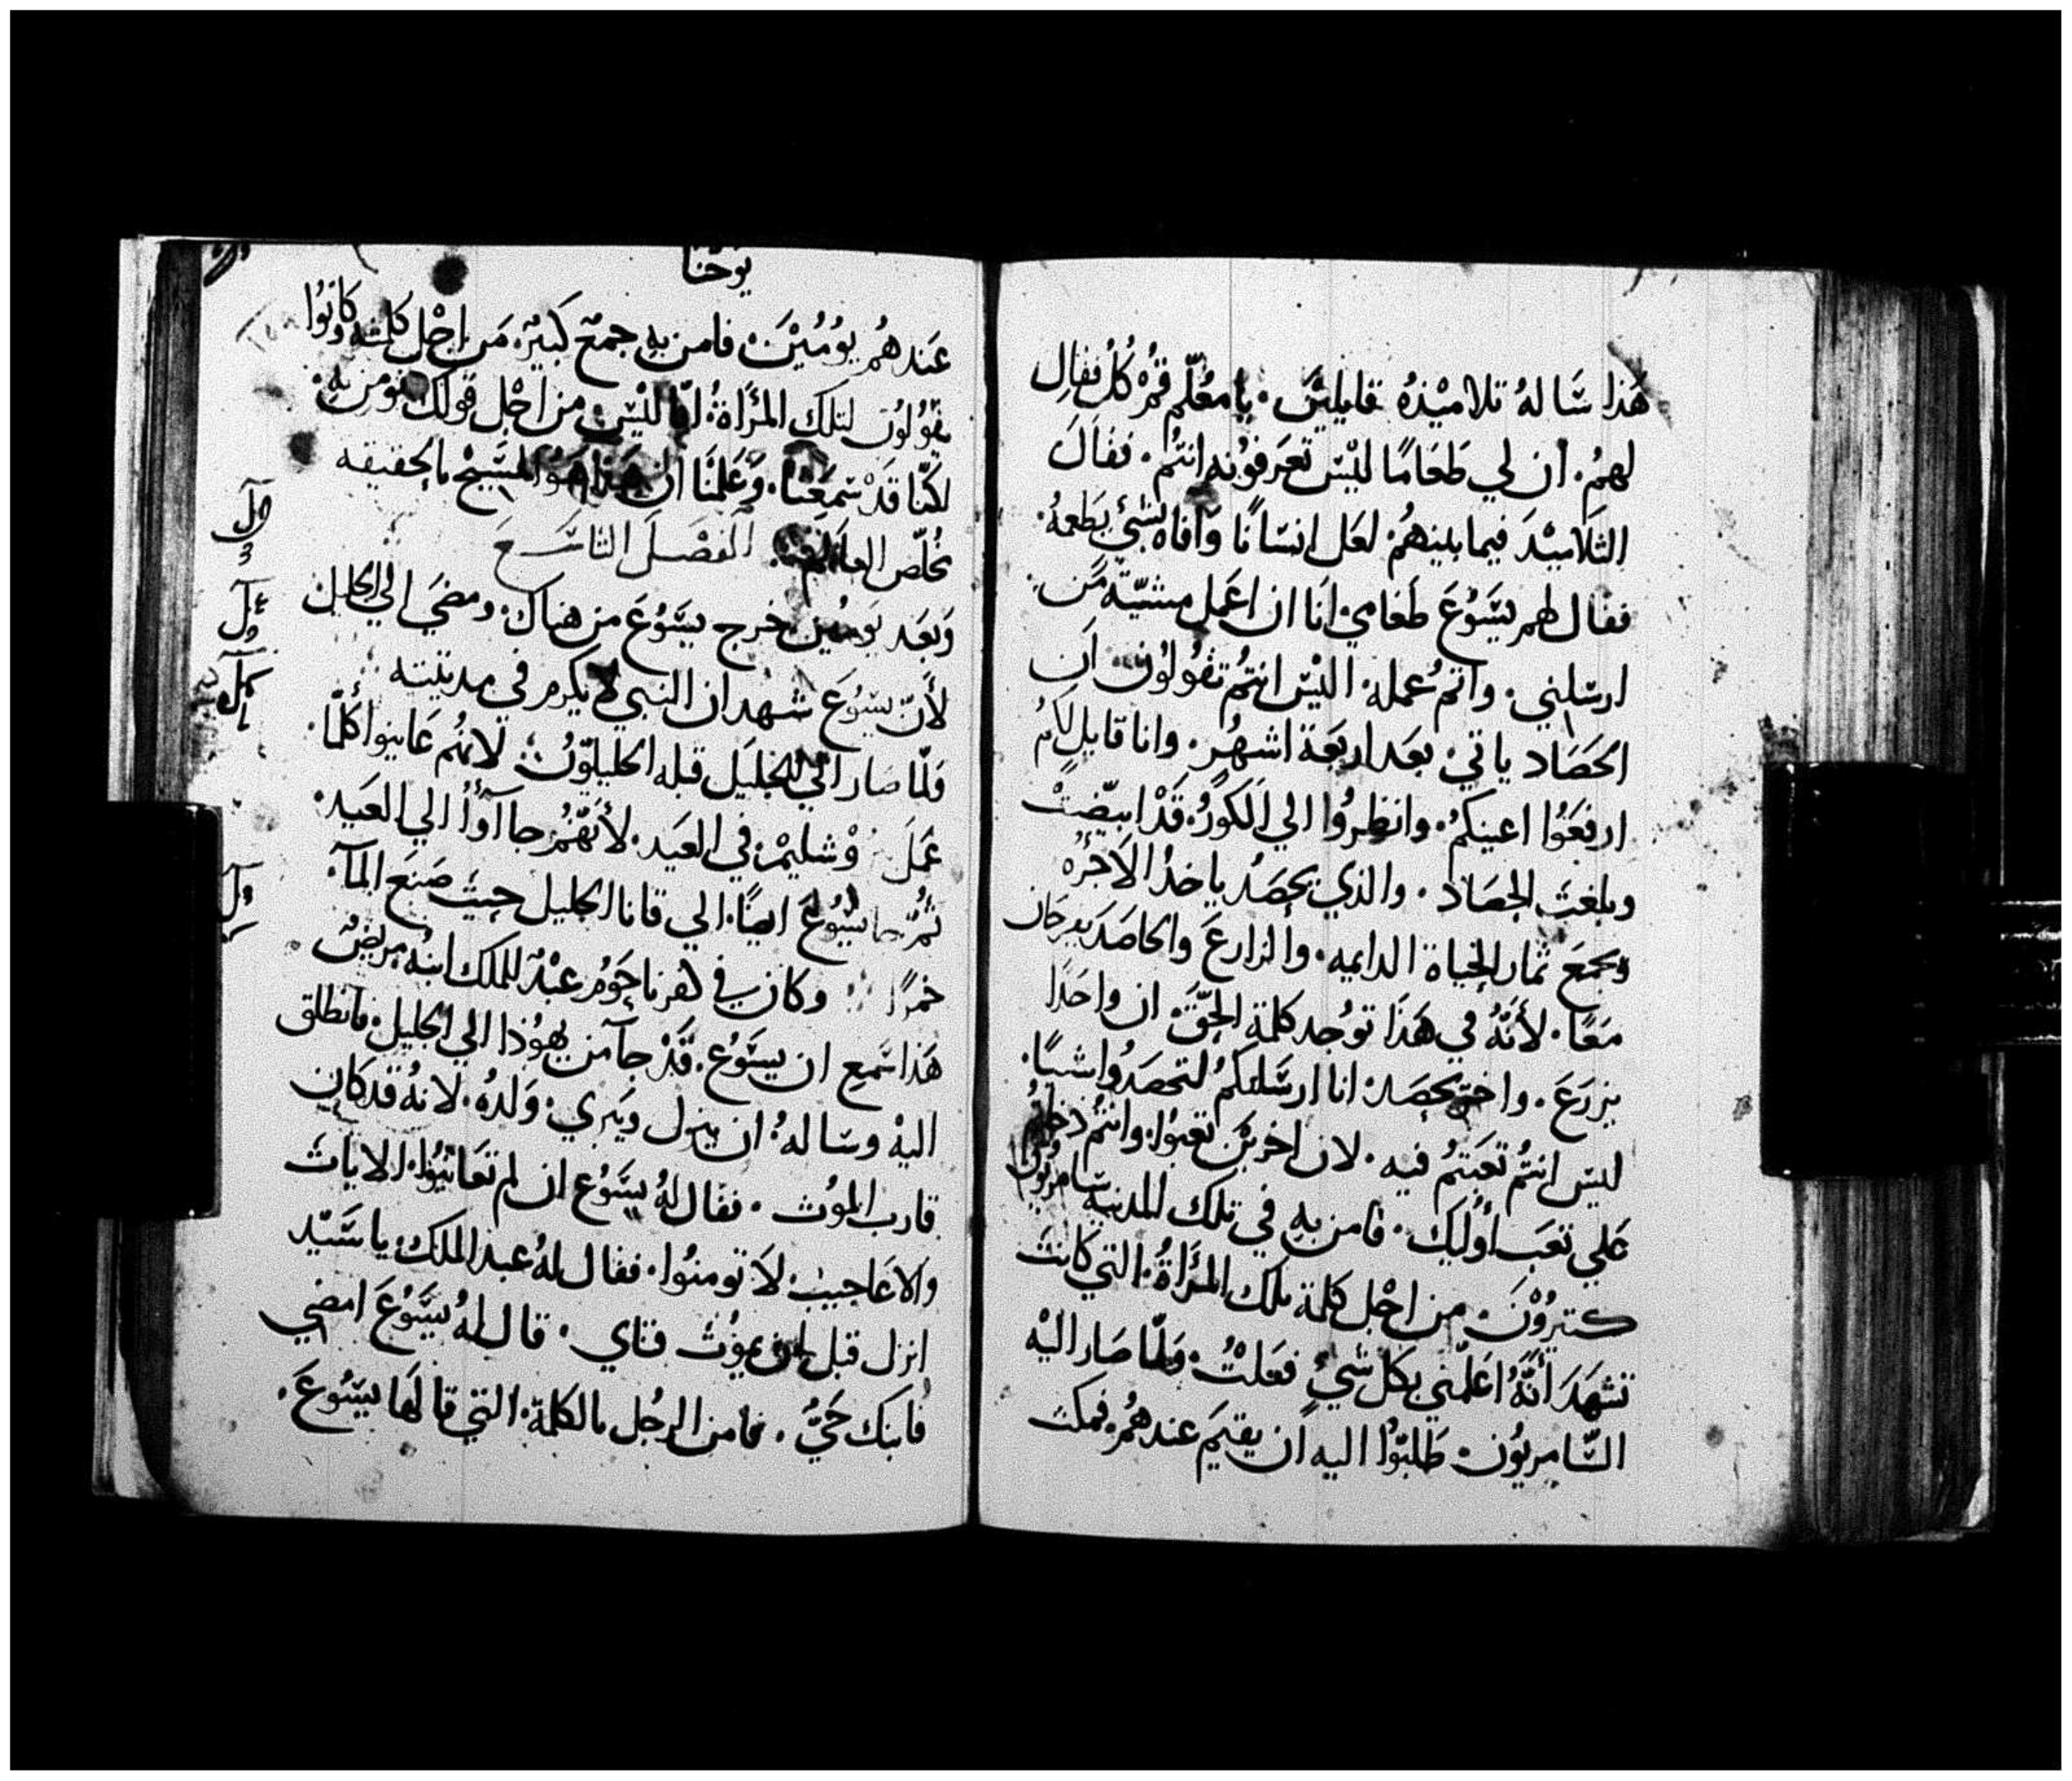 هَذا سَّالهُ تلاميْذهُ قايلينَ. يا معُلّم قمُرْ كُلُ فقالِ
لهمُ. ان لي طَعَامًا ليْسَ تعَرفوُنه انتمُ. فقالَ
التَلاميْدَ فيما بينهمُ. لعَل انسَانًا وَافاه بشئٍ يَطعمهُ.
فقال لهم يسَّوْعَ طعَامي انَا ان اعَمل مشيّة مَن
ارسَلني. واتمُ عمله. اليْسَ انتمُ تقُولوُن اَن
الحَصَاد ياتي بعَد اربَعَة اشهُر. وانا قايل لكمُ
ارفعَوُا اعينكمُ. وانظرُوا الي الَكورُ قَدْ ابيّضتْ
وبلغت الحصَاد. والذي يحصَدُ ياخدُ الاَجرُه
وَيجمَع ثمار الحياة الدايمه. والزارعَ والحاصَدَ يفرحَان
معَا. لأنّهُ في هَذَا توُجد كلمة الحَقّ ان واحَدًا
يزرَعَ. واخر يحصَد. انا ارسَّلتكمُ لتحصَدُوا شيًا.
ليسَ انتمُ تعَبتمُ فيه. لان اخرينَ تعَبوُا وانتمُ دخلتمُ
عَلي تعَب أوُليك. فامن بهِ في تلك المدينه سَامريُون
كتيروُنَ. من اجْل كلمة تلك المرَأةُ التي كانتَ
تشهَدَ أنَّهُ اعَلمّني بكل شيٍ فعَلتُ. فلمّا صَار اليْه
السَّامريُون. طَلبَوُا اليه ان يقيمَ عندهمُ. فمكث
يوحنا
عَندهمُ يوُميْنَ. فامن بهِ جمعٌ كبَيرٌ. مَن اجْل كلمته وكَانوُا
يقوُلوُن لتلك المرَأة. انّا ليْسَ من اجْل قولك نومن بهِ.
لكنّا قَدْ سَمعَنا. وَعَلمنَا ان هَذا هُوَ المسَّيحْ بالحقيقه
مخُلّص العالم. الفصَلَ التاسَعَ
وَبعَد يَومُين خرج يسَّوُعَ من هناك. ومضَي الي الجليل
لأَنّ يسَوُعَ شهد ان النبي لا يكرم في مدينته
فلمّا صَار الي الجليَل قبله الجليليّوُن لانهمُ عَاينوا كلّما.
عَمَل وْشليمْ في العَيد. لأنهَّمُ جاآوُا الي العَيد.
تمُّ جا يسَّوُعَ ايضًا. الي قانا الجليل حيثَ صَنعَ المآ.
خمرًا وكان في كفرناحَوُم عبْدٌ للملك ابنهُ مريَضٌ
هَذا سَمع ان يسَّوُعَ. قَدْ جآ من يهوُذا الي الجليل. فانطلق
اليْه وسَالهُ. ان ينزل ويَبري. وَلدهُ. لانهُ قَد كان
قارب الموُت. فقال لهُ يسَّوُع ان لم تعَاينوُا الايات
والاعَاجيب لاَ تومنوُا. فقال لهُ عبد الملك. يا سَّيّد
انزل قبل ان يموُت فتاي. قال لهُ يسَّوُعَ امضي
فَابنك حَيٌّ. فامن الرجُل بالكلمة التي قالهَا يسَّوُعَ.